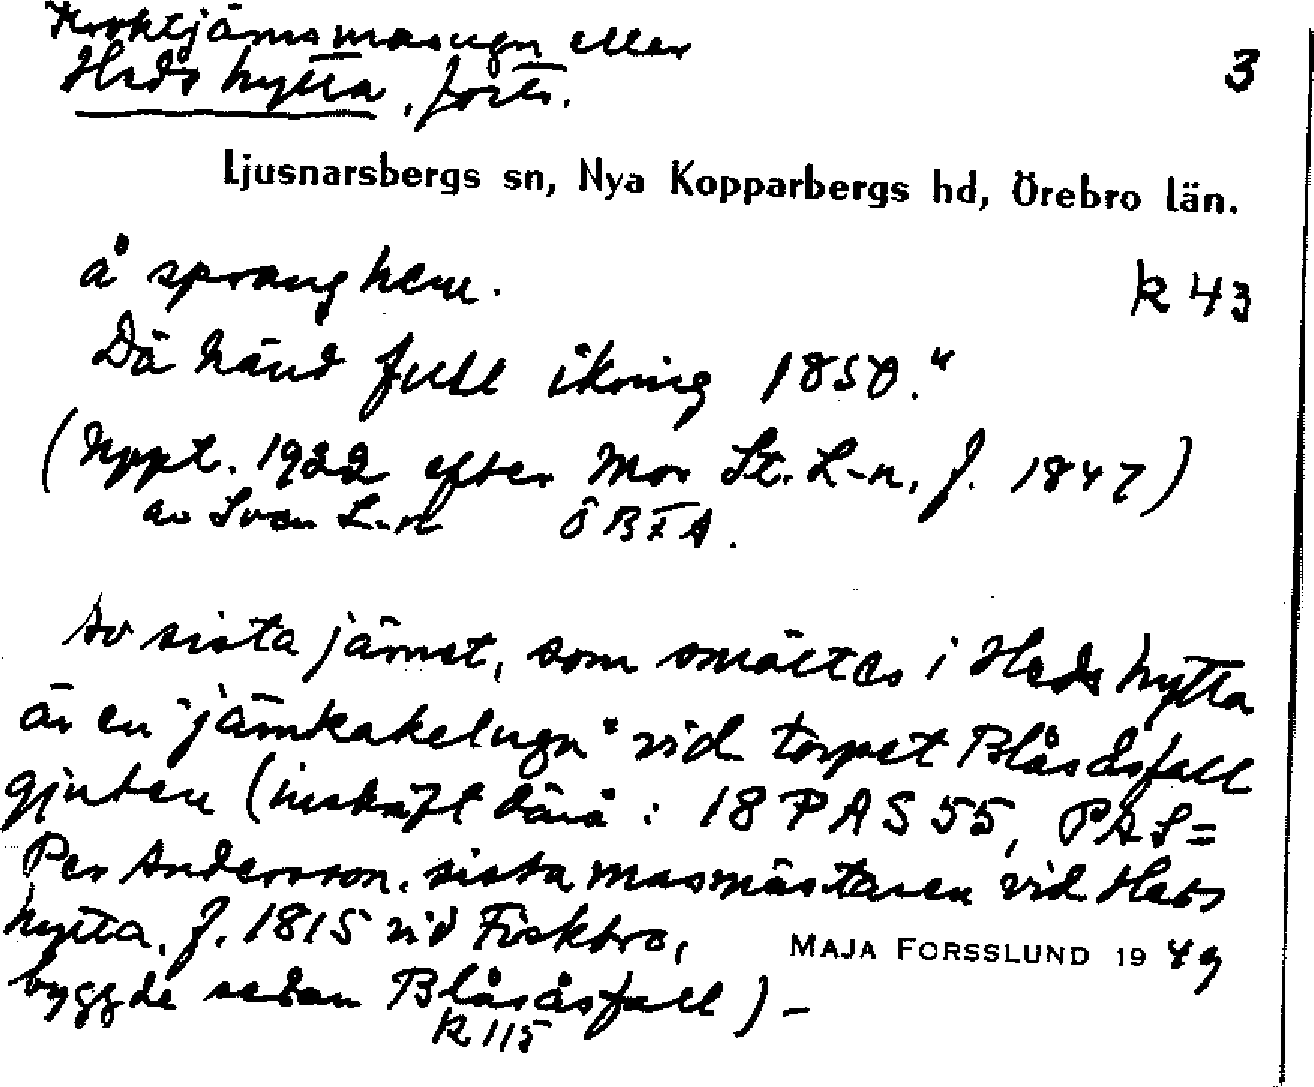 Kroktjärnsmasugn eller
Heds hytta, forts.
3
Ljusnarsbergs sn, Nya Kopparbergs hd, Örebro län.
å sprang hem.
k 43
Dä händ full ikring 1850."
(Uppt. 1922 efter Mor St. L-n, f. 1847)
av Sven L-n ÖBFA.
Av sista järnet, som smältes i Heds hytta
är en "järnkakelugn" vid torpet Blåsåsfall
gjuten (inskrift därå: 18 PAS 55, PAS=
Per Andersson, sista masmästaren vid Heds
hytta, f. 1815 vid Fiskbro,
MAJA FORSSLUND 1949
byggde sedan Blåsåsfall) –
k 115